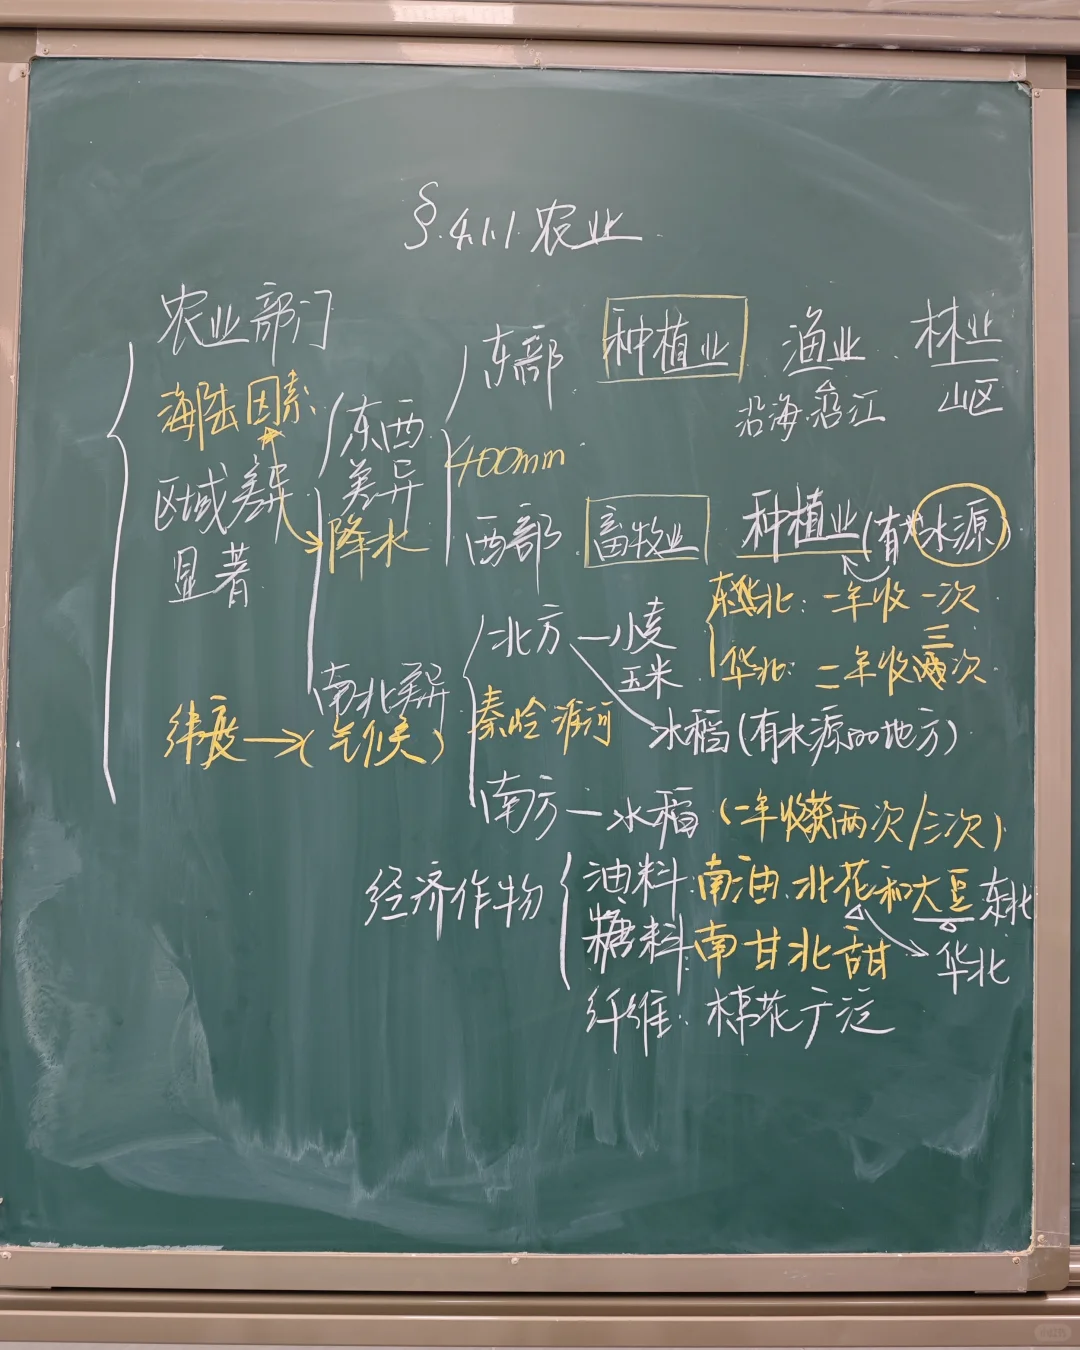 §.4.1.1.农业
农业部门
海陆因素
区域差异
显著
东西
差异
降水
东部 种植业 渔业 林业
沿海.沿江 山区
400mm
西部 畜牧业 种植业(有水源)
南北差异
纬度→(气候)
北方—小麦
玉米
东北:一年收一次
华北:二年收三次
秦岭淮河
水稻(有水源的地方)
南方—水稻(一年收获两次/三次)
经济作物
油料:南油.北花和大豆 东北
华北
糖料:南甘北甜
纤维:棉花广泛